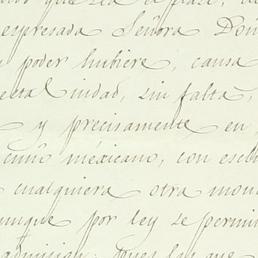 que sea el plazo, de
espresada Señora Doñ
y poder hubiere, causa
ecta Ciudad, sin falta,
y precisamente en
cuño mexicano, con escl
cualquiera otra mon
unque por ley se permi
admision; pues los que